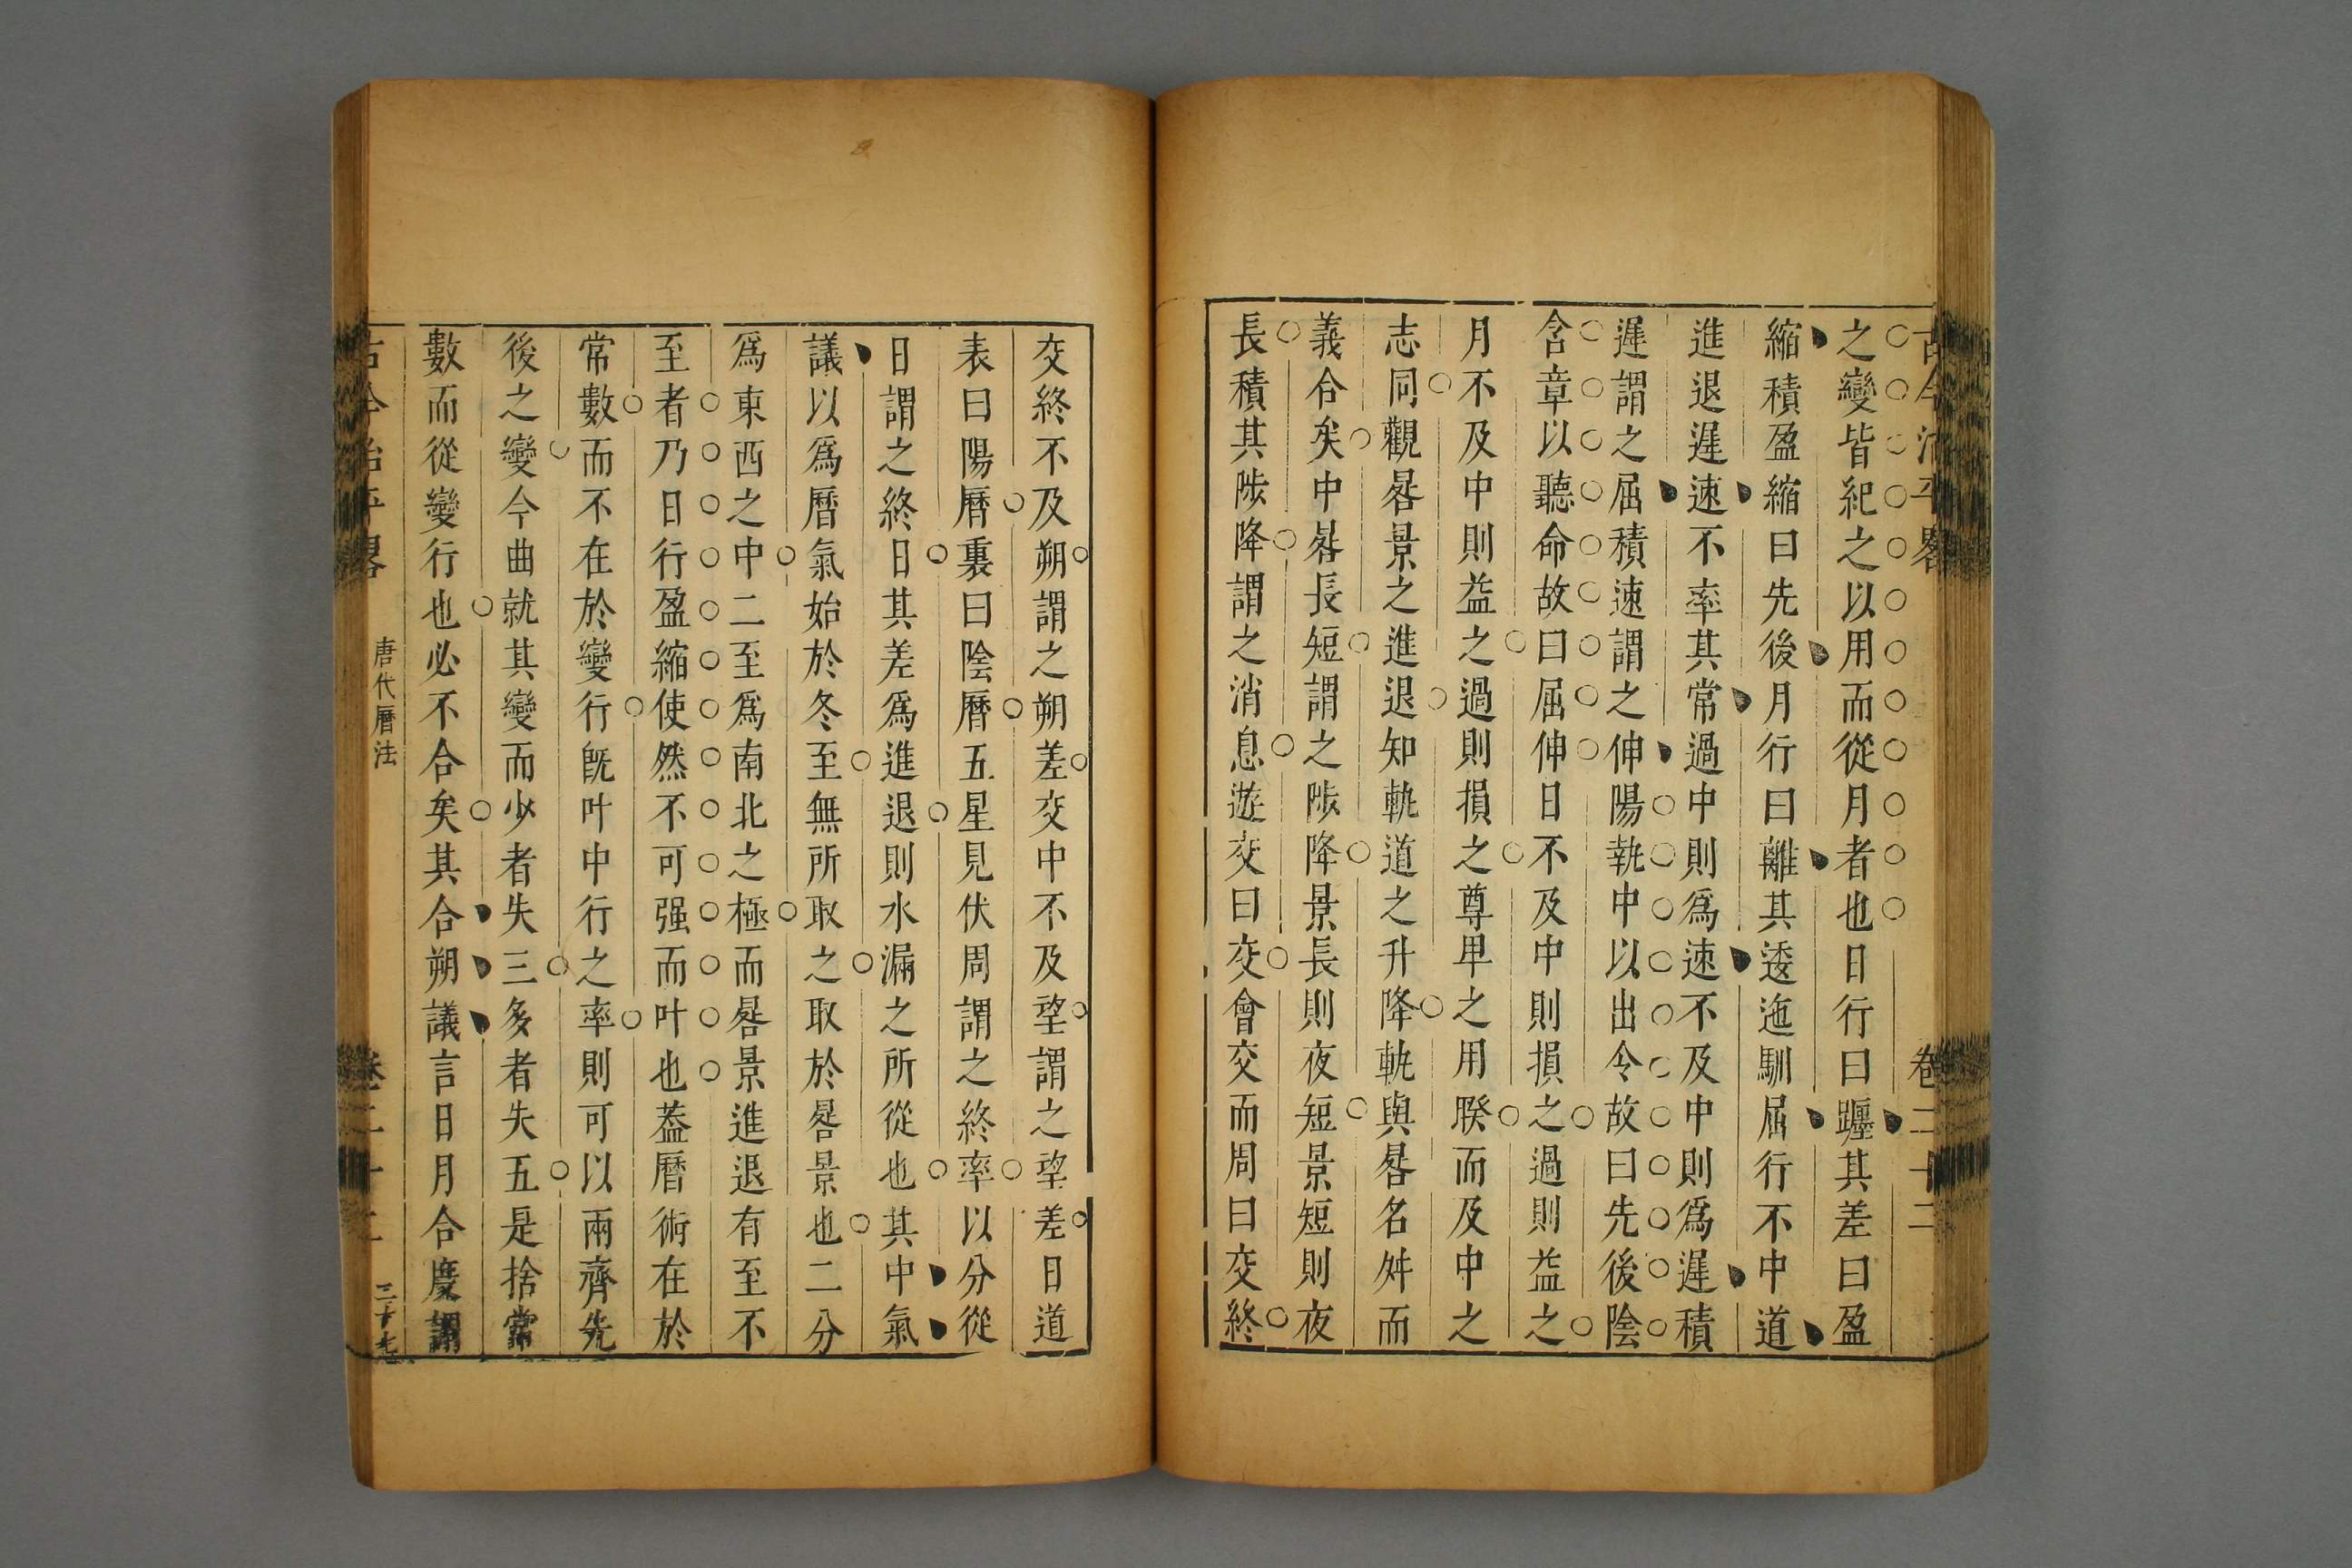 古今治平畧 卷二十二
之變皆紀之以用而從月者也日行曰躔其差曰盈
縮積盈縮曰先後月行曰離其逶迤馴屈行不中道
進退遲速不率其常過中則爲速不及中則爲遲積
遲謂之屈積速謂之伸陽執中以出令故曰先後陰
含章以聽命故曰屈伸日不及中則損之過則益之
月不及中則益之過則損之尊卑之用睽而及中之
志同觀晷景之進退知軌道之升降軌與晷名舛而
義合矣中晷長短謂之陟降景長則夜短景短則夜
長積其陟降謂之消息遊交曰交會交而周曰交終
交終不及朔謂之朔差交中不及望謂之望差日道
表曰陽曆裏曰陰曆五星見伏周謂之終率以分從
日謂之終日其差爲進退則水漏之所從也其中氣
議以爲曆氣始於冬至無所取之取於晷景也二分
爲東西之中二至爲南北之極而晷景進退有至不
至者乃日行盈縮使然不可强而叶也葢曆術在於
常數而不在於變行旣叶中行之率則可以兩齊先
後之變今曲就其變而少者失三多者失五是捨常
數而從變行也必不合矣其合朔議言日月合度謂
古今治平畧 唐代曆法 卷二十二 三十九